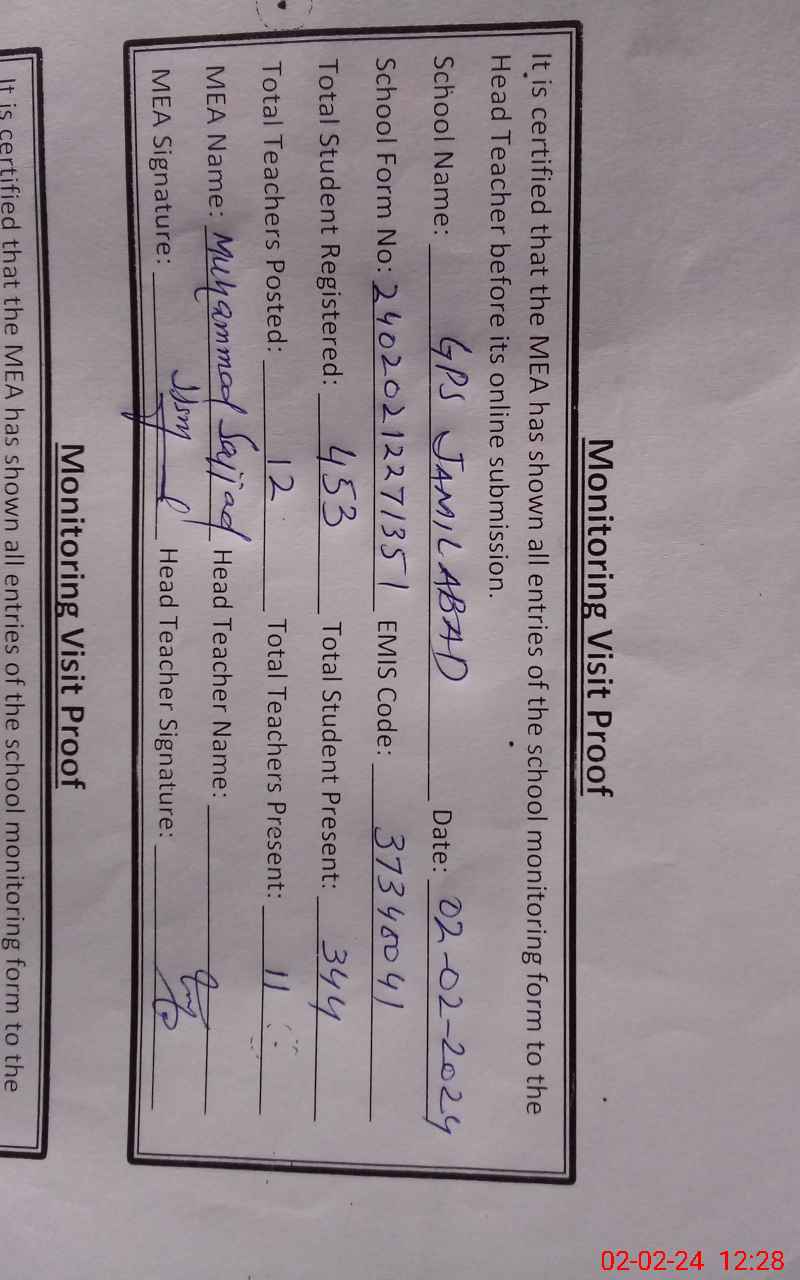 Monitoring Visit Proof
It is certified that the MEA has shown all entries of the school monitoring form to the
Head Teacher before its online submission.
School Name: GPS JAMILABAD Date: 02-02-2024
School Form No: 24020212271351 EMIS Code: 37340041
Total Student Registered: 453 Total Student Present: 344
Total Teachers Posted: 12 Total Teachers Present: 11
MEA Name: Muhammad Sajjad Head Teacher Name:
MEA Signature: Head Teacher Signature:
Monitoring Visit Proof
It is certified that the MEA has shown all entries of the school monitoring form to the
02-02-24 12:28